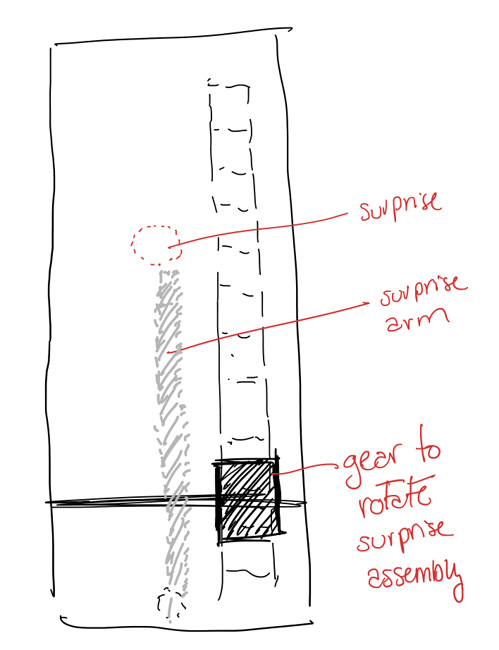 surprise
surprise
arm
gear to
rotate
surprise
assembly